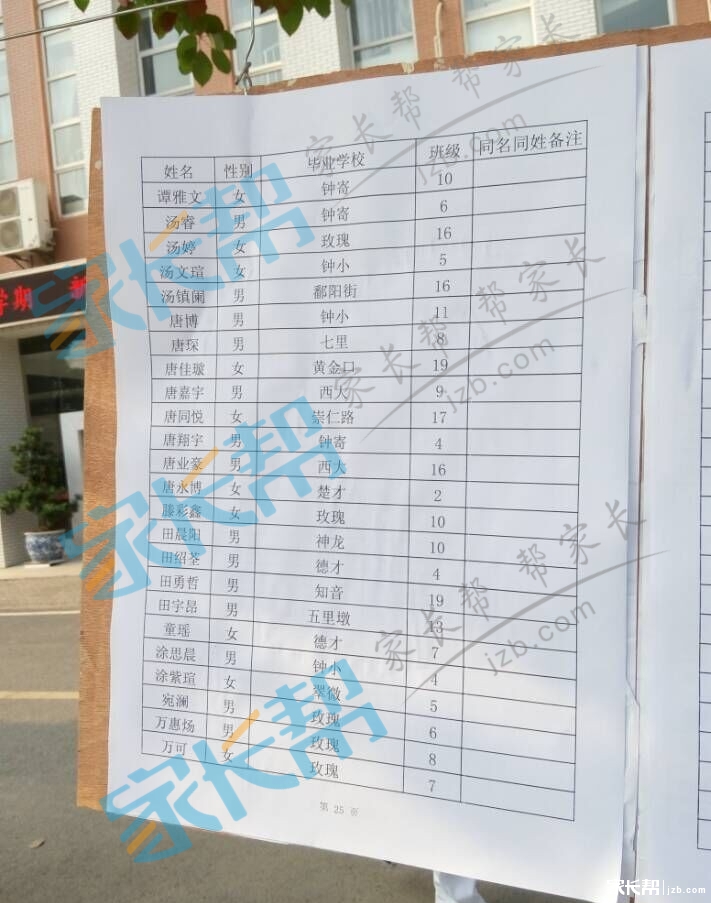 姓名 性别 毕业学校 班级 同名同姓备注
谭雅文 女 钟寄 10
汤睿 男 钟寄 6
汤婷 女 玫瑰 16
汤文瑄 女 钟小 5
汤镇阑 男 鄱阳街 16
唐博 男 钟小 11
唐琛 男 七里 8
唐佳璇 女 黄金口 19
唐嘉宇 男 西大 9
唐同悦 女 崇仁路 17
唐翔宇 男 钟寄 4
唐业豪 男 西大 16
唐永博 女 楚才 2
滕彩鑫 女 玫瑰 10
田晨阳 男 神龙 10
田绍荃 男 德才 4
田勇哲 男 知音 19
田宇昂 男 五里墩 13
童瑶 女 德才 7
涂思晨 男 钟小 4
涂紫瑄 女 翠微 5
宛澜 男 玫瑰 6
万惠炀 男 玫瑰 8
万可 女 玫瑰 7
第 25 页
学期
家长帮
家长帮
家长帮
家长帮 帮家长
jzb.com
家长帮 帮家长
jzb.com
家长帮 帮家长
jzb.com
家长帮 jzb.com